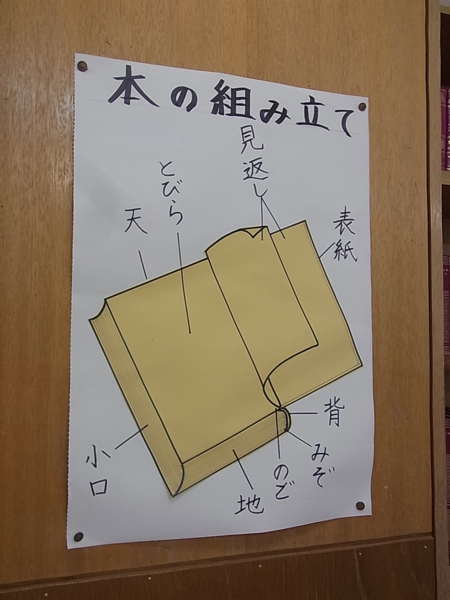 本の組み立て
見返し
とびら
天
表紙
背
みぞ
のど
地
小口